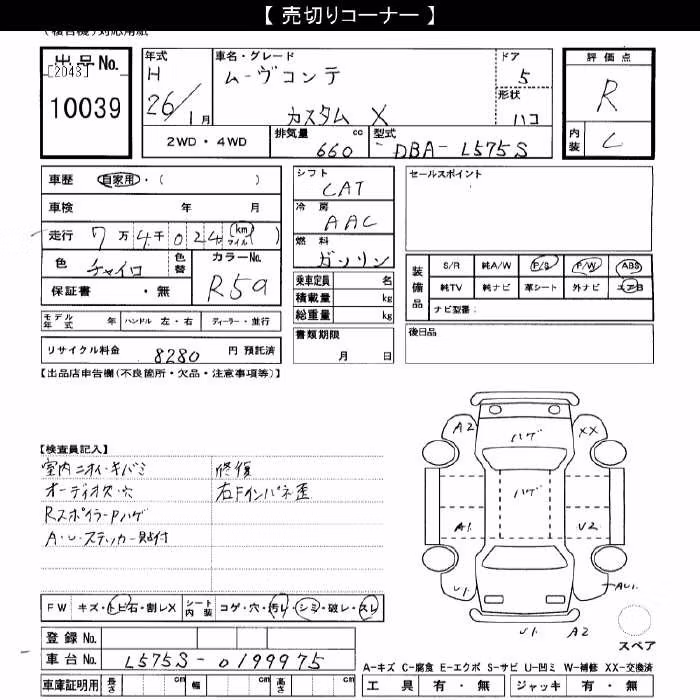 【 売切りコーナー 】
(複合機)対応用紙
出品No.
[2043]
10039
年式
H
26/1月
車名・グレード
ムーヴコンテ
カスタム X
ドア
5
形状
ハコ
評価点
R
内装
C
2WD・4WD
排気量
660
cc
型式
DBA-L575S
車歴
自家用・( )
車検 年 月
走行 7万4千024 (km マイル)
色
チャイロ
色替
カラーNo.
R59
保証書 ・ 無
モデル年式 年
ハンドル 左・右
ディーラー・並行
リサイクル料金 8280 円 預託済
シフト
CAT
冷房
AAC
燃料
ガソリン
乗車定員 名
積載量 kg
総重量 kg
書類期限
月 日
セールスポイント
装備品
S/R 純A/W P/S P/W ABS
純TV 純ナビ 革シート 外ナビ エアB
ナビ型番:
後日品
【出品店申告欄(不良箇所・欠品・注意事項等)】
【検査員記入】
室内ニオイ・キバミ
オーディオス・穴
RスポイラーPハゲ
A・U・ステッカー貼付
修復
右Fインパネ歪
A2 ハゲ XX
ハゲ
A1 U2
U1 AU1
U1 A2
スペア
FW キズ・トビ石・割レX
シート内装 コゲ・穴・汚レ・シミ・破レ・スレ
登録No.
車台No. L575S-0199975
車庫証明用 長さ cm 幅 cm 高さ cm
A-キズ C-腐食 E-エクボ S-サビ U-凹ミ W-補修 XX-交換済
工具 有・無 ジャッキ 有・無